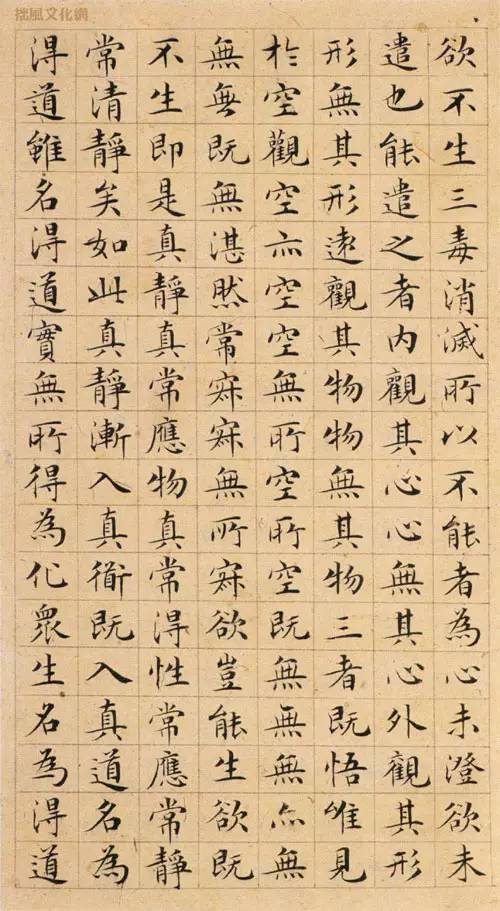 拙風文化網
欲不生三毒消滅所以不能者為心未澄欲未
遣也能遣之者内觀其心心無其心外觀其形
形無其形遠觀其物物無其物三者既悟唯見
於空觀空亦空空無所空所空既無無無亦無
無無既無湛然常寂寂無所寂欲豈能生欲既
不生即是真靜真常應物真常得性常應常靜
常清靜矣如此真靜漸入真衜既入真道名為
得道雖名得道實無所得為化眾生名為得道